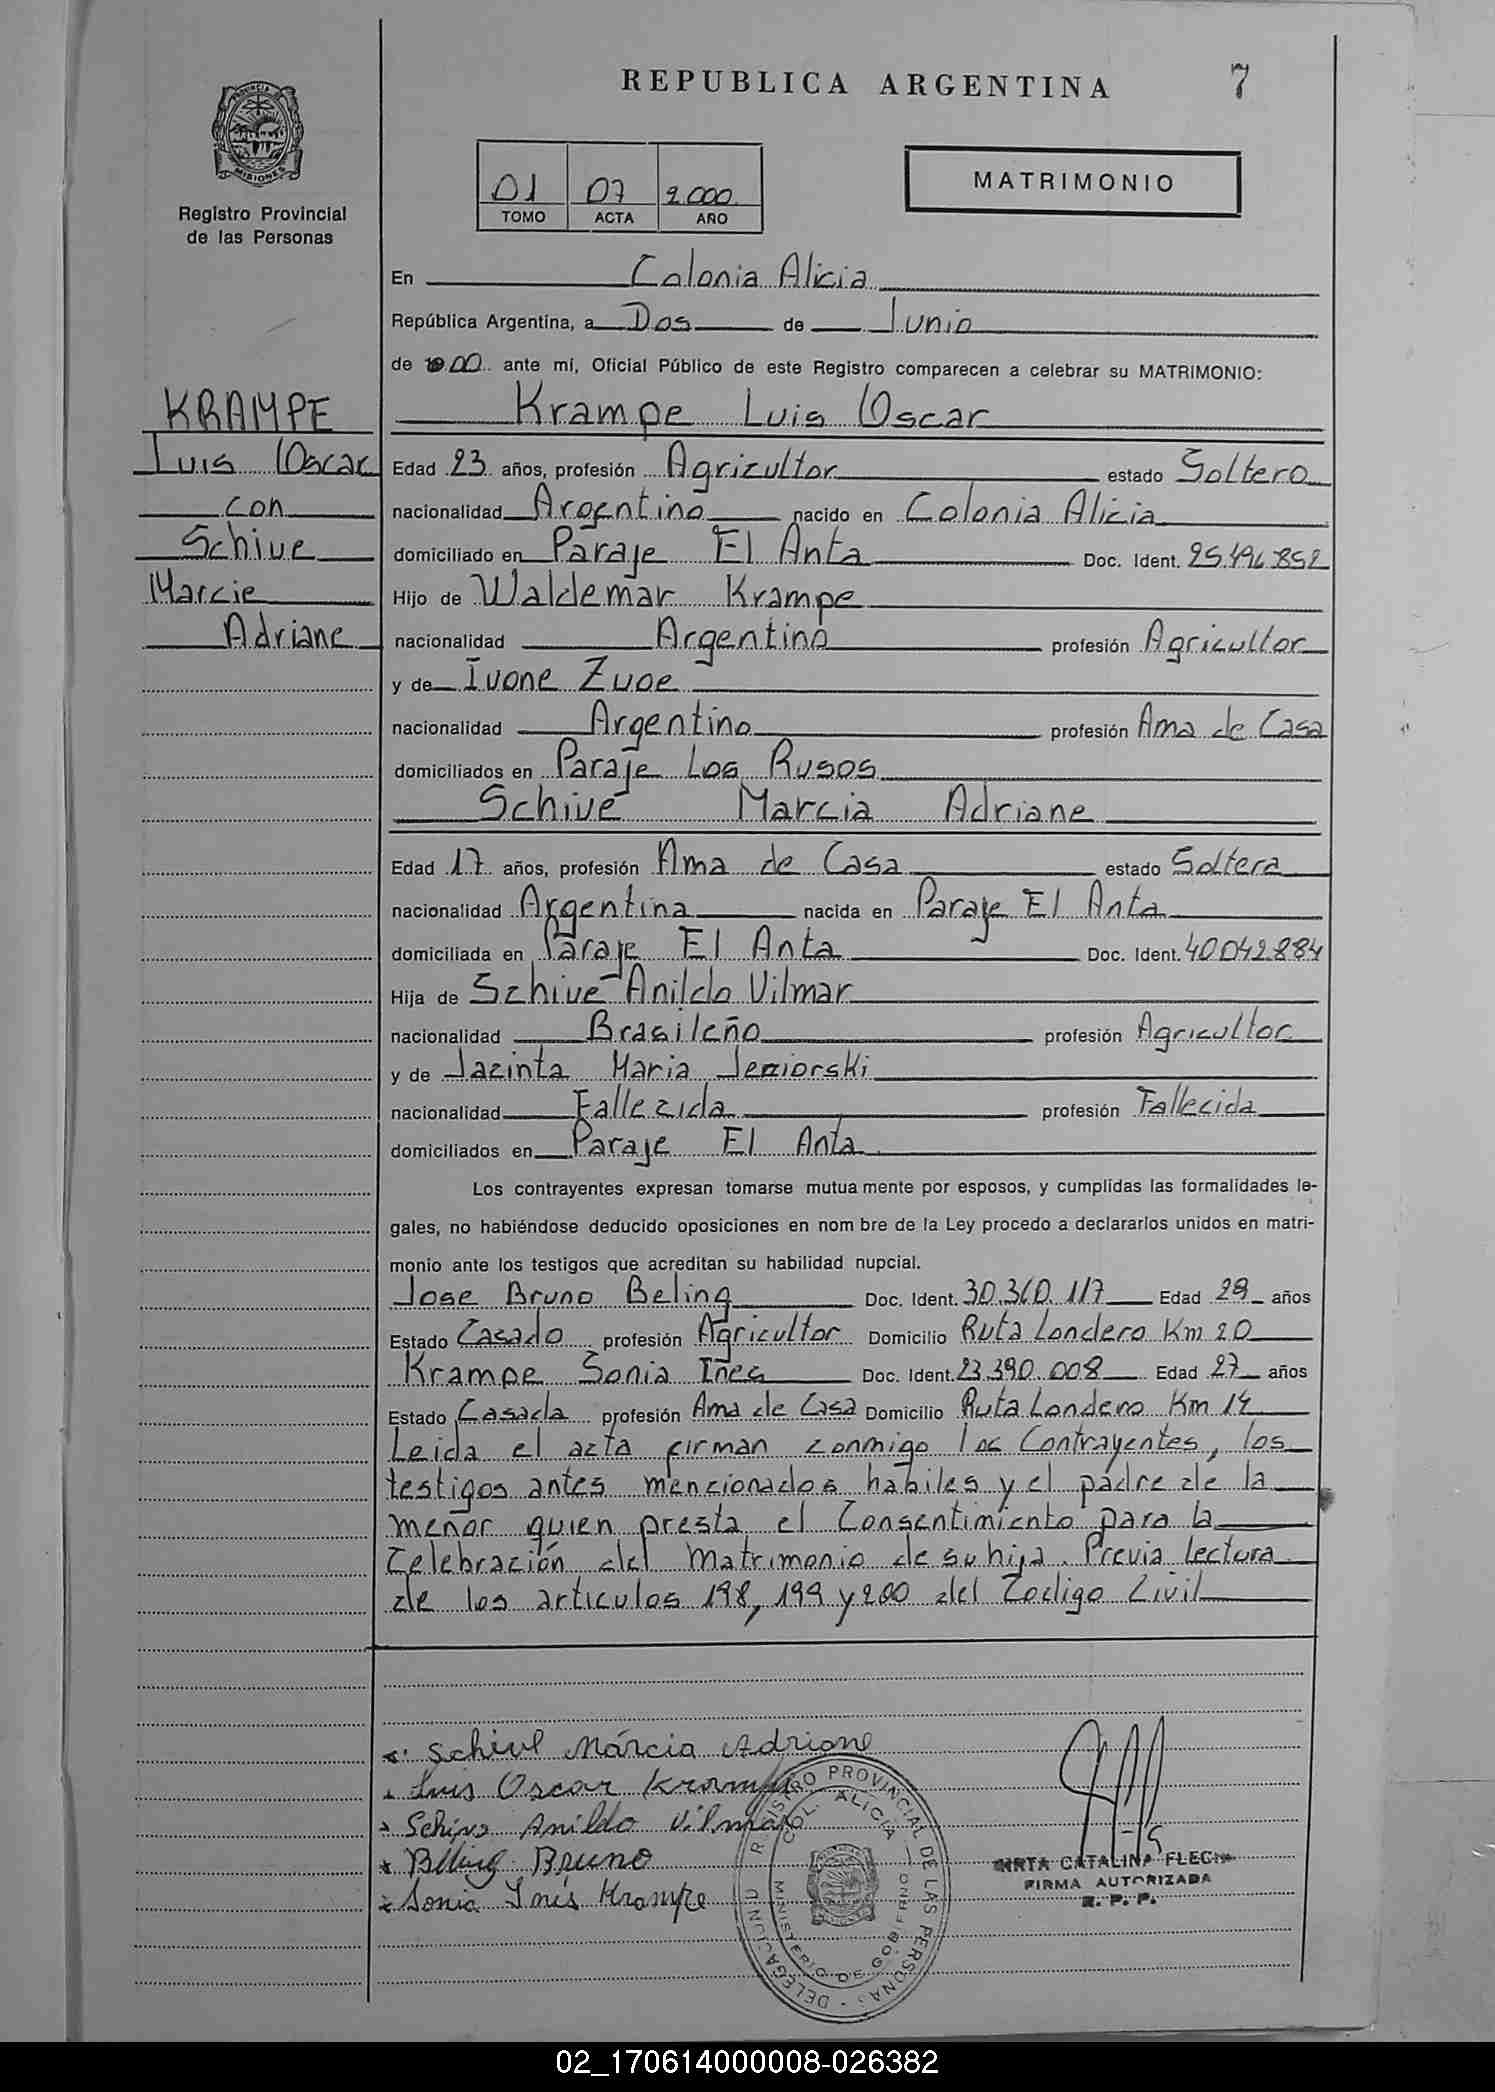 REPUBLICA ARGENTINA 7
PROVINCIA DE
MISIONES
Registro Provincial
de las Personas
01 07 2.000
TOMO ACTA AÑO
MATRIMONIO
En Colonia Alicia
República Argentina, a Dos de Junio
de 00 ante mí, Oficial Público de este Registro comparecen a celebrar su MATRIMONIO:
KRAMPE
Luis Oscar
con
Schive
Marcie
Adriane
Krampe Luis Oscar
Edad 23 años, profesión Agricultor estado Soltero
nacionalidad Argentino nacido en Colonia Alicia
domiciliado en Paraje El Anta Doc. Ident. 25.496.852
Hijo de Waldemar Krampe
nacionalidad Argentino profesión Agricultor
y de Ivone Zuoe
nacionalidad Argentino profesión Ama de Casa
domiciliados en Paraje Los Rusos
Schive Marcia Adriane
Edad 17 años, profesión Ama de Casa estado Soltera
nacionalidad Argentina nacida en Paraje El Anta
domiciliada en Paraje El Anta Doc. Ident. 40.042.884
Hija de Schive Anildo Vilmar
nacionalidad Brasileño profesión Agricultor
y de Jacinta Maria Jeziorski
nacionalidad Fallecida profesión Fallecida
domiciliados en Paraje El Anta
Los contrayentes expresan tomarse mutua mente por esposos, y cumplidas las formalidades le-
gales, no habiéndose deducido oposiciones en nom bre de la Ley procedo a declararlos unidos en matri-
monio ante los testigos que acreditan su habilidad nupcial.
Jose Bruno Beling Doc. Ident. 30.360.117 Edad 28 años
Estado Casado profesión Agricultor Domicilio Ruta Londero Km 20
Krampe Sonia Iñes Doc. Ident. 23.390.008 Edad 27 años
Estado Casada profesión Ama de Casa Domicilio Ruta Londero Km 14
Leida el acta firman conmigo los Contrayentes, los
testigos antes mencionados habiles y el padre de la
menor quien presta el Consentimiento para la
Celebración del Matrimonio de su hija. Previa lectura
de los articulos 198, 199 y 200 del Codigo Civil
Schive Márcia Adriane
Luis Oscar Krampe
Schive Anildo Vilmar
Beling Bruno
Sonia Inés Krampe
REGISTRO PROVINCIAL DE LAS PERSONAS - DELEGACION
COL. ALICIA
MINISTERIO DE GOBIERNO
MIRTA CATALINA FLECHA
FIRMA AUTORIZADA
R. P. P.
02_170614000008-026382